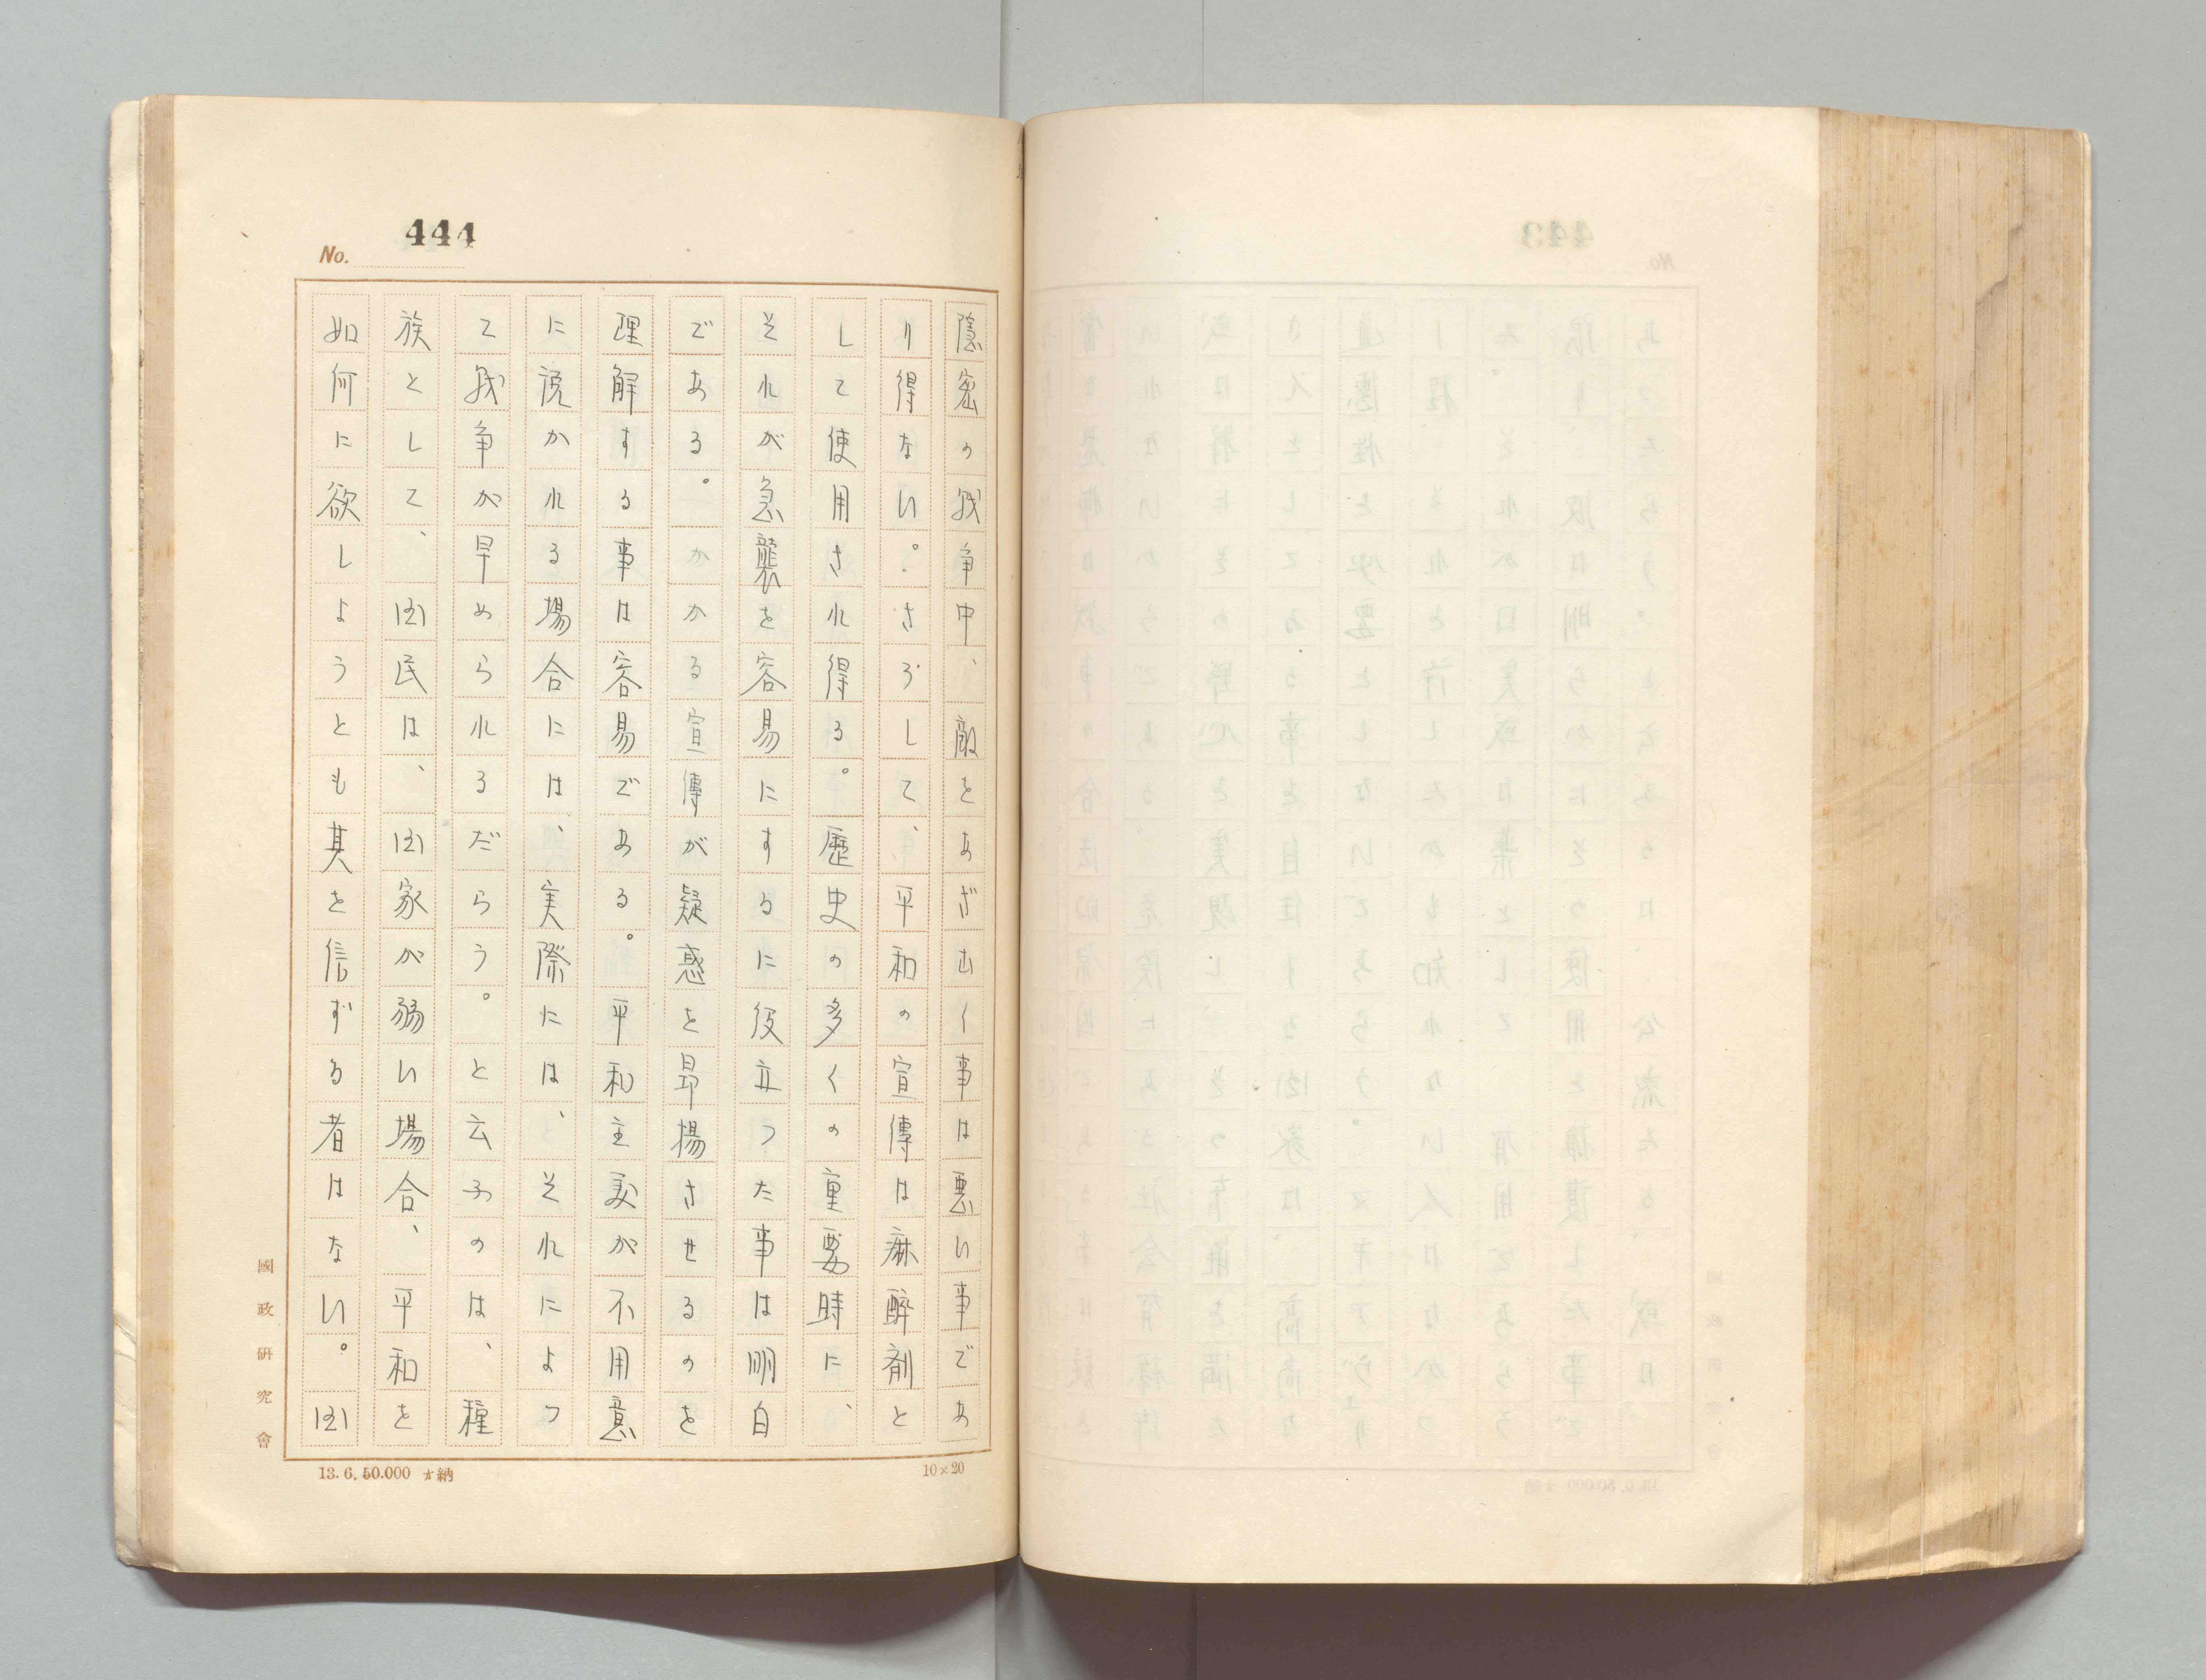 444
No.
隱密の戦争中、敵をあざむく事は悪い事であ
り得ない。さうして、平和の宣傳は麻醉剤と
して使用され得る。歴史の多くの重要時に、
それが急襲を容易にするに役立つた事は明白
である。かかる宣傳が疑惑を昂揚させるのを
理解する事は容易である。平和主義が不用意
に説かれる場合には、実際には、それによつ
て戦争が早められるだらう。と云ふのは、種
族として、国民は、国家が弱い場合、平和を
如何に欲しようとも其を信ずる者はない。国
國政研究會
10×20
13.6.50.000 納